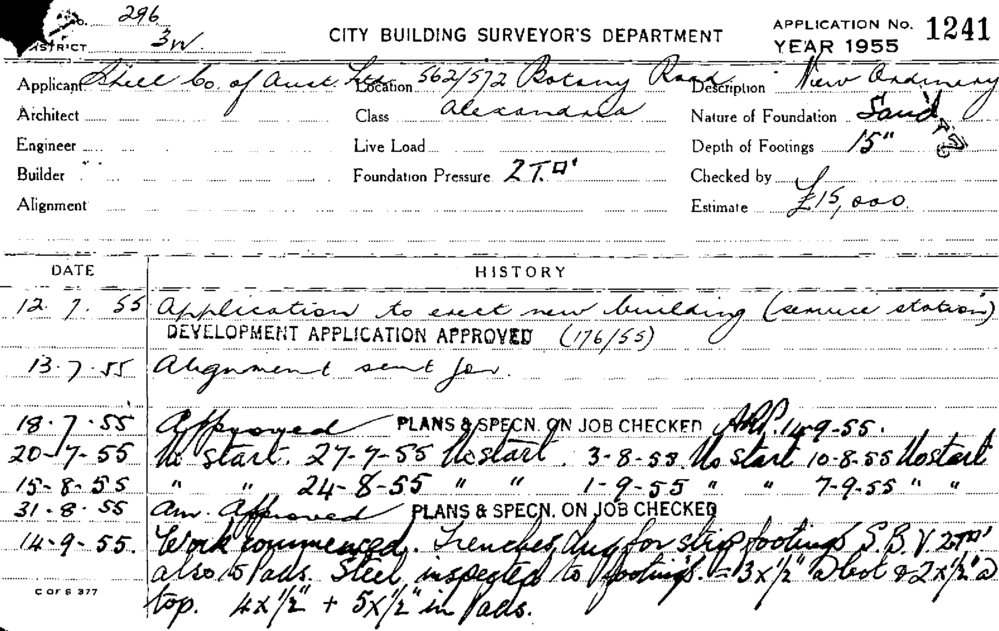 No. 296
DISTRICT 3W.
CITY BUILDING SURVEYOR'S DEPARTMENT
APPLICATION No. 1241
YEAR 1955
Applicant Shell Co. of Aust. Ltd. Location 562/572 Botany Road Description New Ordinary
Architect Class Alexandria Nature of Foundation Sand
Engineer Live Load Depth of Footings 15"
Builder Foundation Pressure 2 T.□' Checked by
Alignment Estimate £15,000.
DATE HISTORY
12. 7. 55 Application to erect new building (service station)
DEVELOPMENT APPLICATION APPROVED (176/55)
13.7.55 Alignment sent for.
18.7.55 Approved PLANS & SPECN. ON JOB CHECKED 14-9-55.
20-7-55 No start. 27-7-55 No start. 3-8-55 No start 10-8-55 No start
15-8-55 " " 24-8-55 " " 1-9-55 " " 7-9-55 " "
31-8-55 Am. Approved PLANS & SPECN. ON JOB CHECKED
14-9-55. Work commenced. Trenches dug for strip footings S.B. 2T□'
also 15 Pads. Steel inspected to footings. = 3x½" @ bot & 2x½" @
top. 4x½" + 5x½" in Pads.
C OF S 377